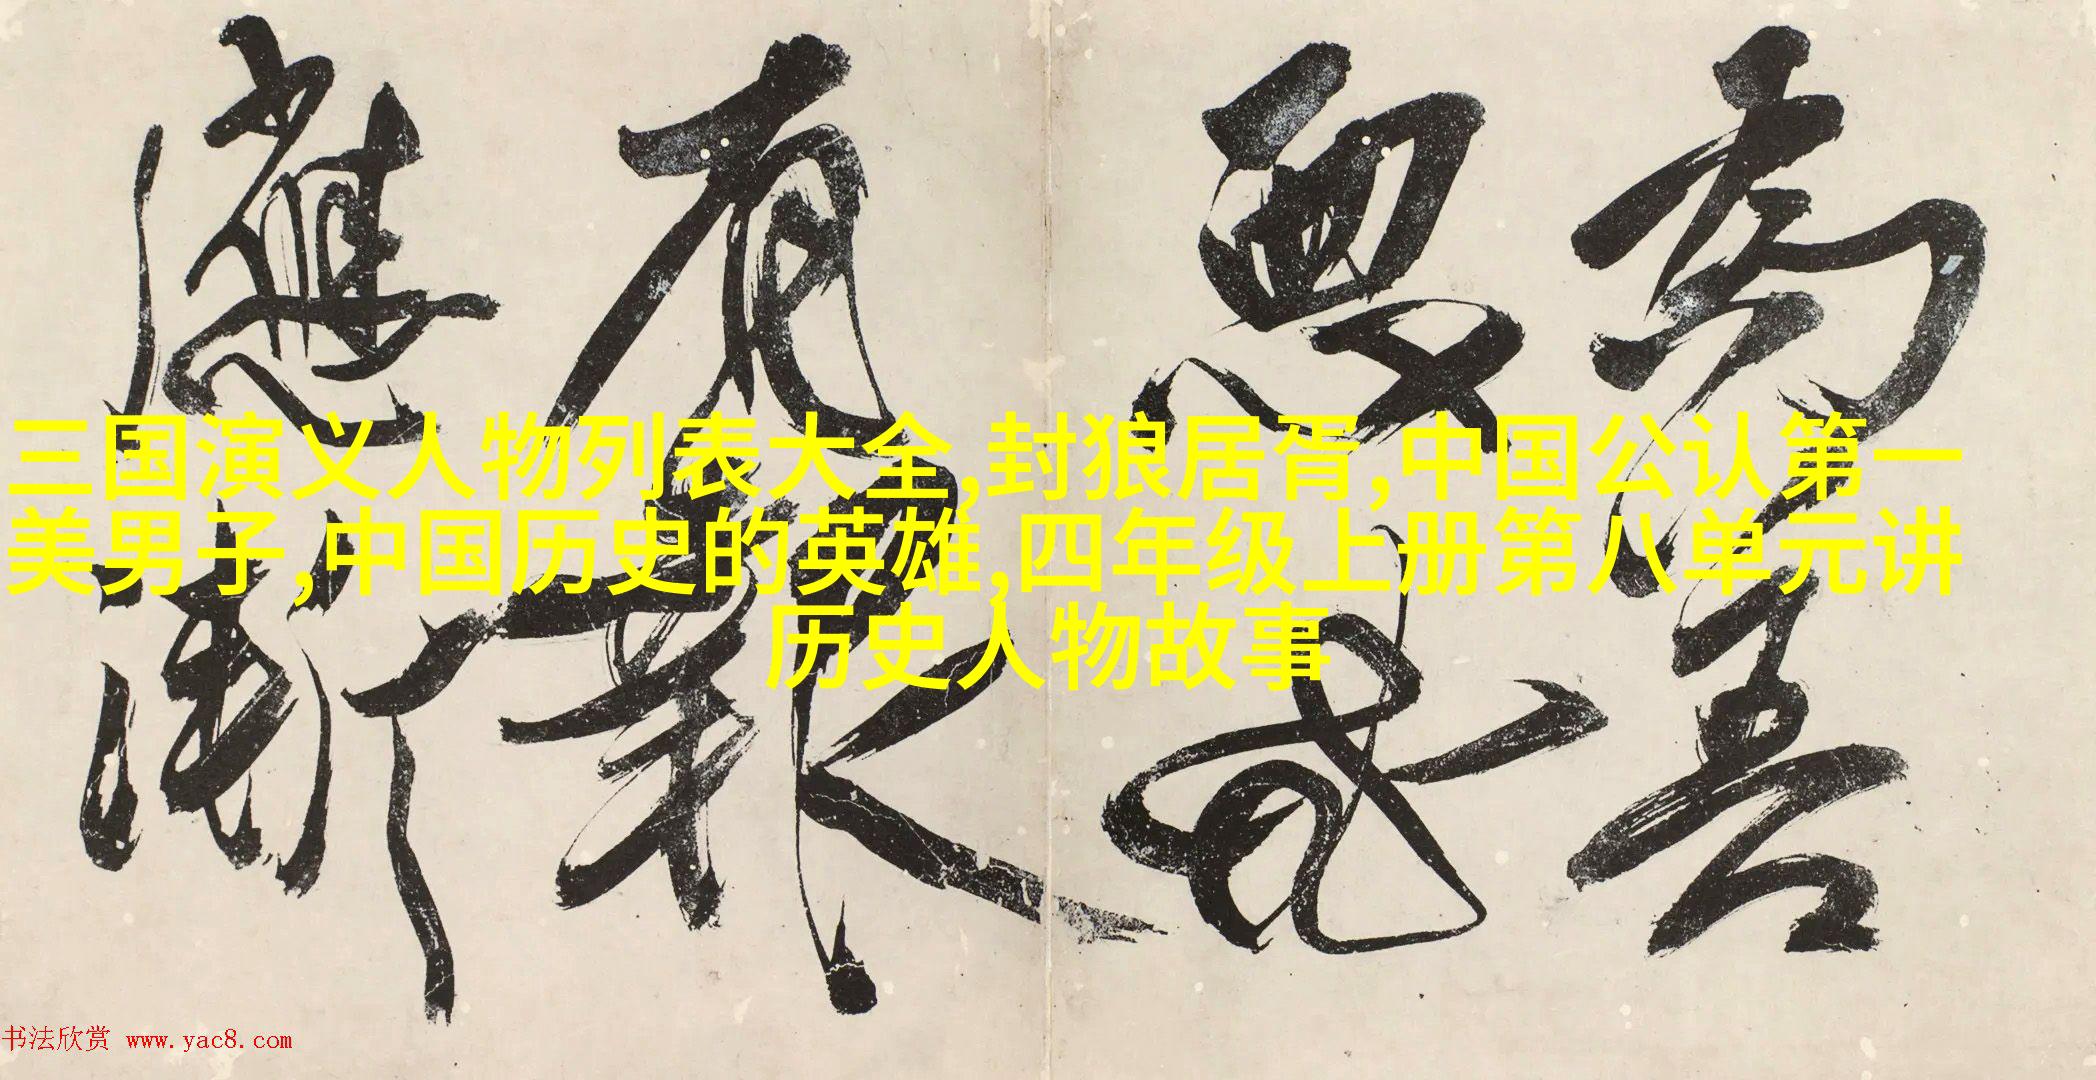 為善
惡或
有報
應漸
三国演义人物列表大全,封狼居胥,中国公认第一
美男子,中国历史的英雄,四年级上册第八单元讲
历史人物故事
书法欣赏 www.yac8.com